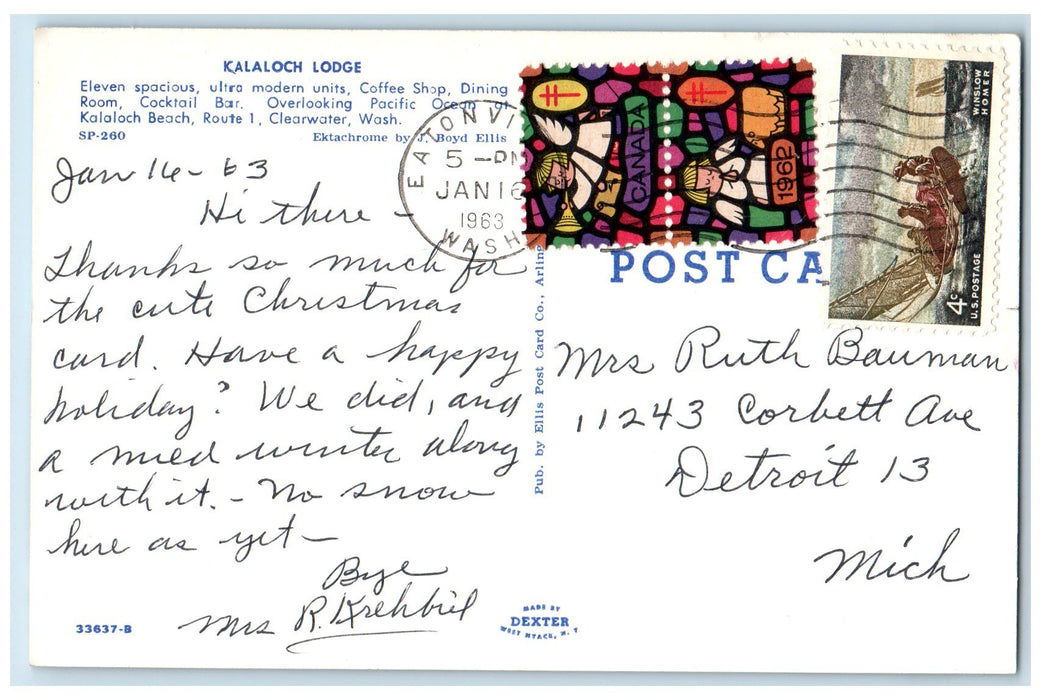 KALALOCH LODGE
Eleven spacious, ultra modern units, Coffee Shop, Dining
Room, Cocktail Bar. Overlooking Pacific Ocean at
Kalaloch Beach, Route 1, Clearwater, Wash.
SP-260 Ektachrome by J. Boyd Ellis
Jan 16-63
Hi there -
Thanks so much for
the cute Christmas
card. Have a happy
holiday? We did, and
a mied winter along
with it. - No snow
here as yet -
Bye
Mrs R. Krehbiel
33637-B
EATONVI
WASH
5 -PM
JAN 16
1963
CANADA
1962
WINSLOW
HOMER
4c
U.S. POSTAGE
POST CA
Pub. by Ellis Post Card Co., Arling
Mrs Ruth Bauman
11243 Corbett Ave
Detroit 13
Mich
MADE BY
DEXTER
WEST NYACK, N. Y